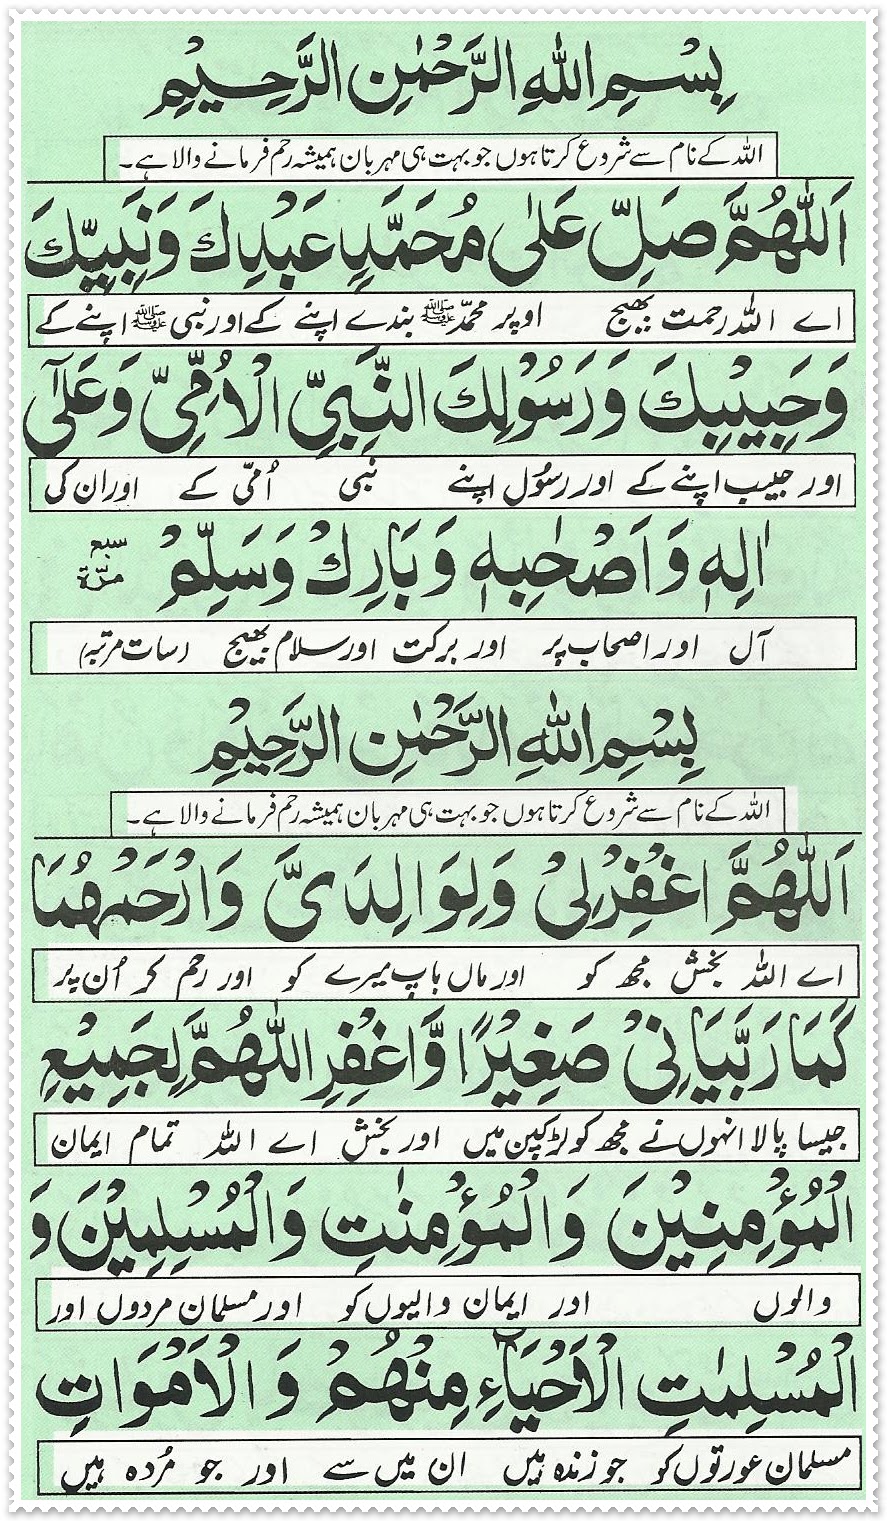 بِسْمِ اللهِ الرَّحْمٰنِ الرَّحِيْمِ
اللہ کے نام سے شروع کرتا ہوں جو بہت ہی مہربان ہمیشہ رحم فرمانے والا ہے۔
اَللّٰهُمَّ صَلِّ عَلٰى مُحَمَّدٍ عَبْدِكَ وَنَبِيِّكَ
اے اللہ رحمت بھیج اوپر محمدّ ﷺ بندے اپنے کے اور نبی ﷺ اپنے کے
وَحَبِيْبِكَ وَرَسُوْلِكَ النَّبِيِّ الْاُمِّيِّ وَعَلٰٓى
اور حبیب اپنے کے اور رسُول اپنے نبی اُمّی کے اور ان کی
اٰلِهٖ وَاَصْحٰبِهٖ وَبَارِكْ وَسَلِّمْ سبع مرّة
آل اور اصحاب پر اور برکت اور سلام بھیج (سات مرتبہ)
بِسْمِ اللهِ الرَّحْمٰنِ الرَّحِيْمِ
اللہ کے نام سے شروع کرتا ہوں جو بہت ہی مہربان ہمیشہ رحم فرمانے والا ہے۔
اَللّٰهُمَّ اغْفِرْلِيْ وَلِوَالِدَىَّ وَارْحَمْهُمَا
اے اللہ بخش مجھ کو اور ماں باپ میرے کو اور رحم کر اُن پر
كَمَا رَبَّيَانِيْ صَغِيْرًا وَّاغْفِرِ اللّٰهُمَّ لِجَمِيْعِ
جیسا پالا انہوں نے مجھ کو لڑکپن میں اور بخش اے اللہ تمام ایمان
الْمُؤْمِنِيْنَ وَالْمُؤْمِنٰتِ وَالْمُسْلِمِيْنَ وَ
والوں اور ایمان والیوں کو اور مسلمان مردوں اور
الْمُسْلِمٰتِ الْاَحْيَآءِ مِنْهُمْ وَالْاَمْوَاتِ
مسلمان عورتوں کو جو زندہ ہیں ان میں سے اور جو مُردہ ہیں